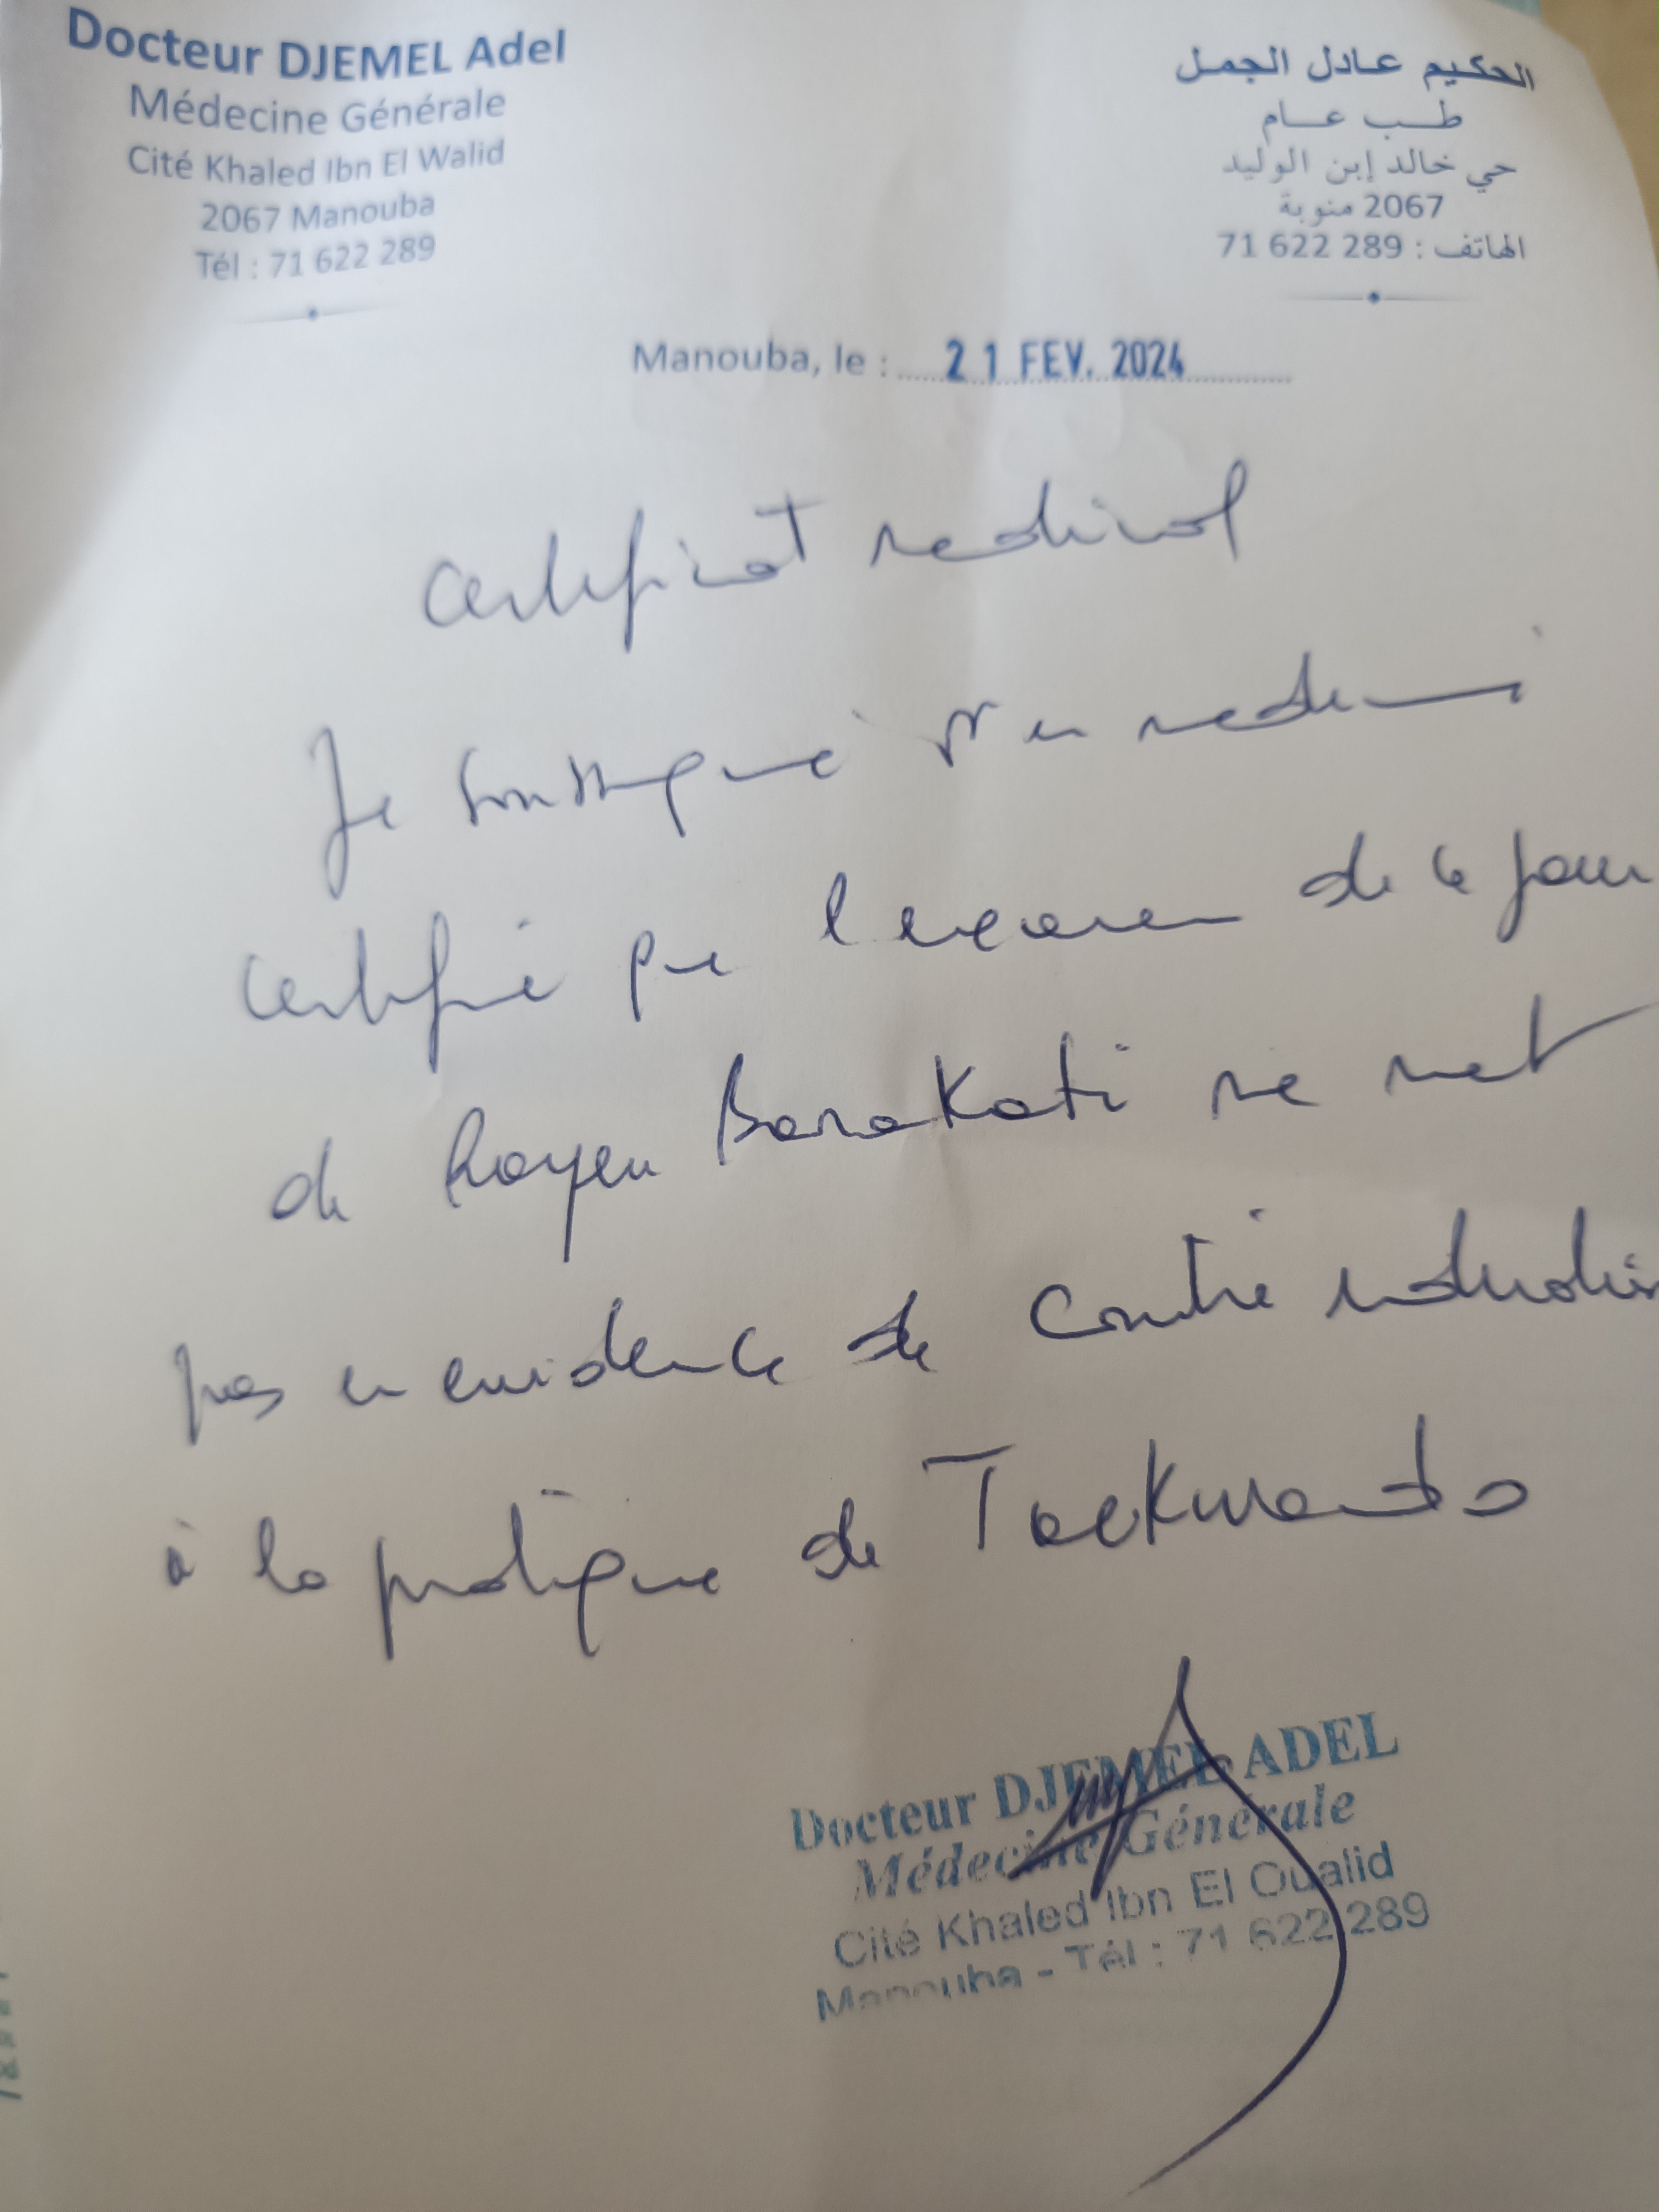 Docteur DJEMEL Adel
Médecine Générale
Cité Khaled Ibn El Walid
2067 Manouba
Tél : 71 622 289
الحكيم عادل الجمل
طب عام
حي خالد إبن الوليد
2067 منوبة
الهاتف : 289 622 71
Manouba, le : 21 FEV. 2024
Certificat medical
Je soussigné Dr en medecine
certifie que l'examen de ce jour
de Rayen Barakati ne met
pas en evidence de contre indication
à la pratique de Taekwondo
Docteur DJEMEL ADEL
Médecine Générale
Cité Khaled Ibn El Oualid
Manouba - Tél : 71 622 289